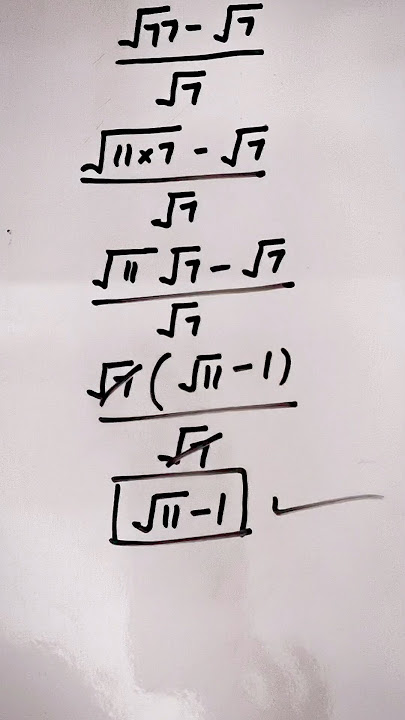 √77 - √7
√7
√11×7 - √7
√7
√11 √7 - √7
√7
√7 ( √11 - 1 )
√7
√11 - 1